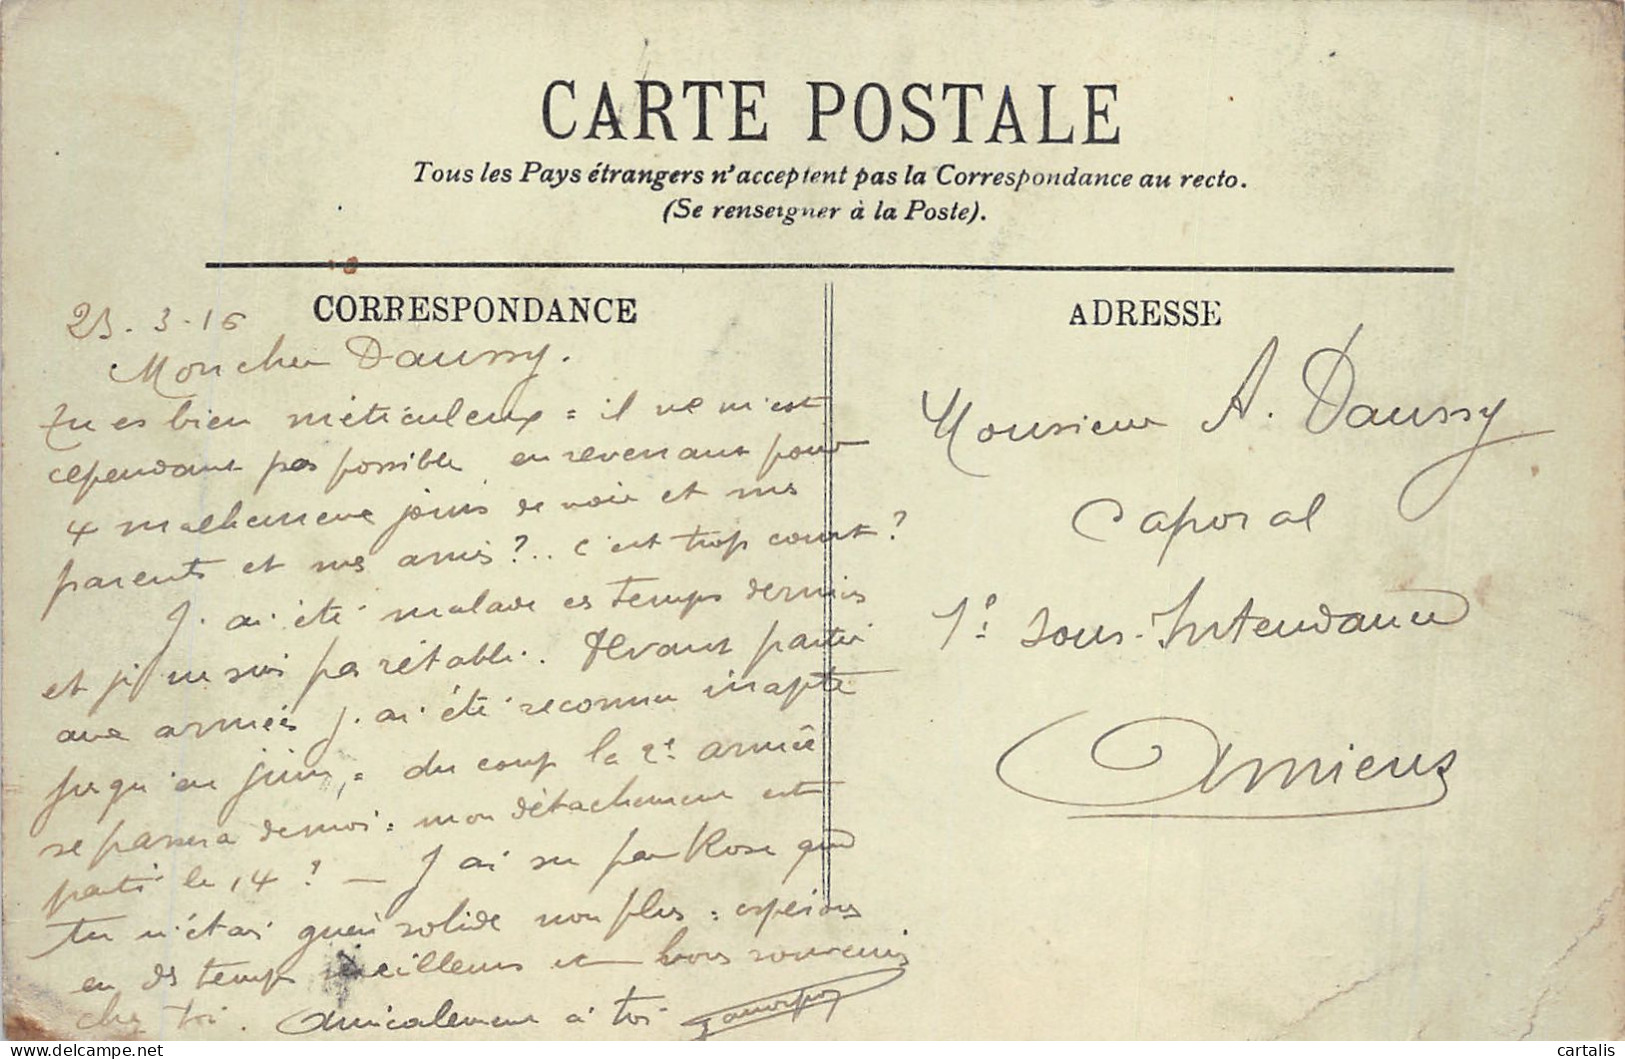 CARTE POSTALE
Tous les Pays étrangers n'acceptent pas la Correspondance au recto.
(Se renseigner à la Poste).
CORRESPONDANCE
23.3.16
Mon cher Daussy.
Tu es bien méticuleux = il ne m'est
cependant pas possible en revenant pour
4 malheureux jours de voir et mes
parents et mes amis?.. C'est trop court?
J'ai été malade ces temps derniers
et je ne suis pas rétabli. Devant partir
aux armées j'ai été reconnu inapte
jusqu'en juin, = du coup la 2e armée
se passera de moi = mon détachement est
parti le 14? — J'ai su par Rose que
tu n'étais guère solide non plus = espérons
en des temps meilleurs et bons souvenirs
chez toi. Amicalement à toi
ADRESSE
Monsieur A. Daussy
Caporal
1e Sous-Intendance
Amiens
cartalis